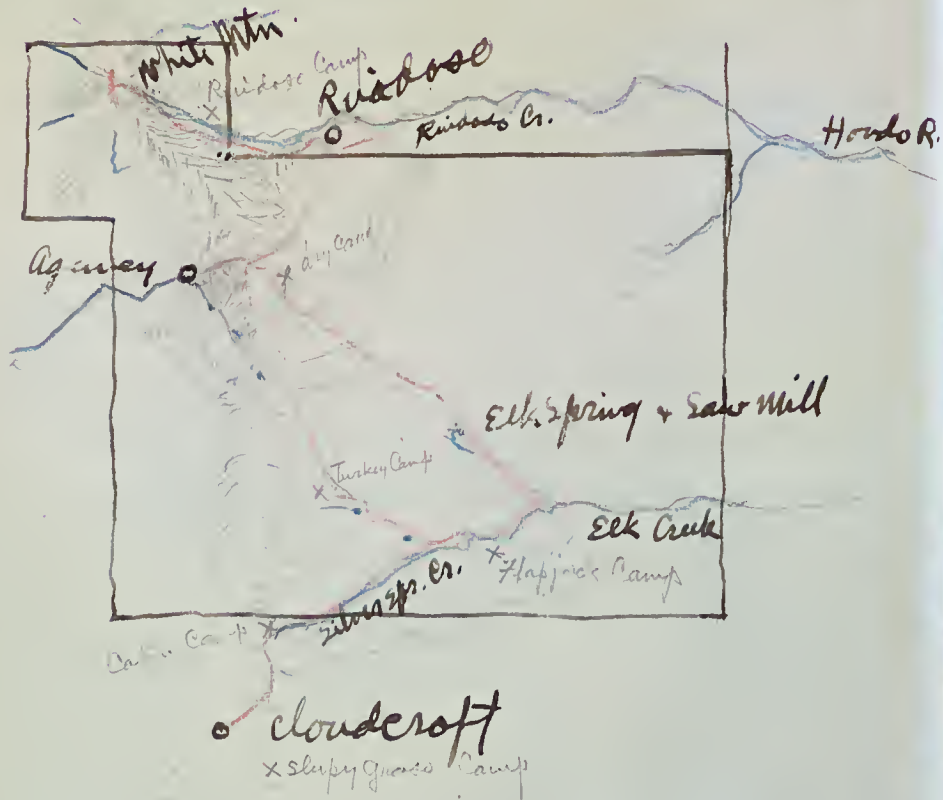 White Mtn.
Ruidoso Camp
Ruidoso
Ruidoso Cr.
Hondo R.
Agency
Elk Spring + Saw Mill
Turkey Camp
Elk Creek
Flapjack Camp
Silver Spr. Cr.
Camp
Cloudcroft
x Camp